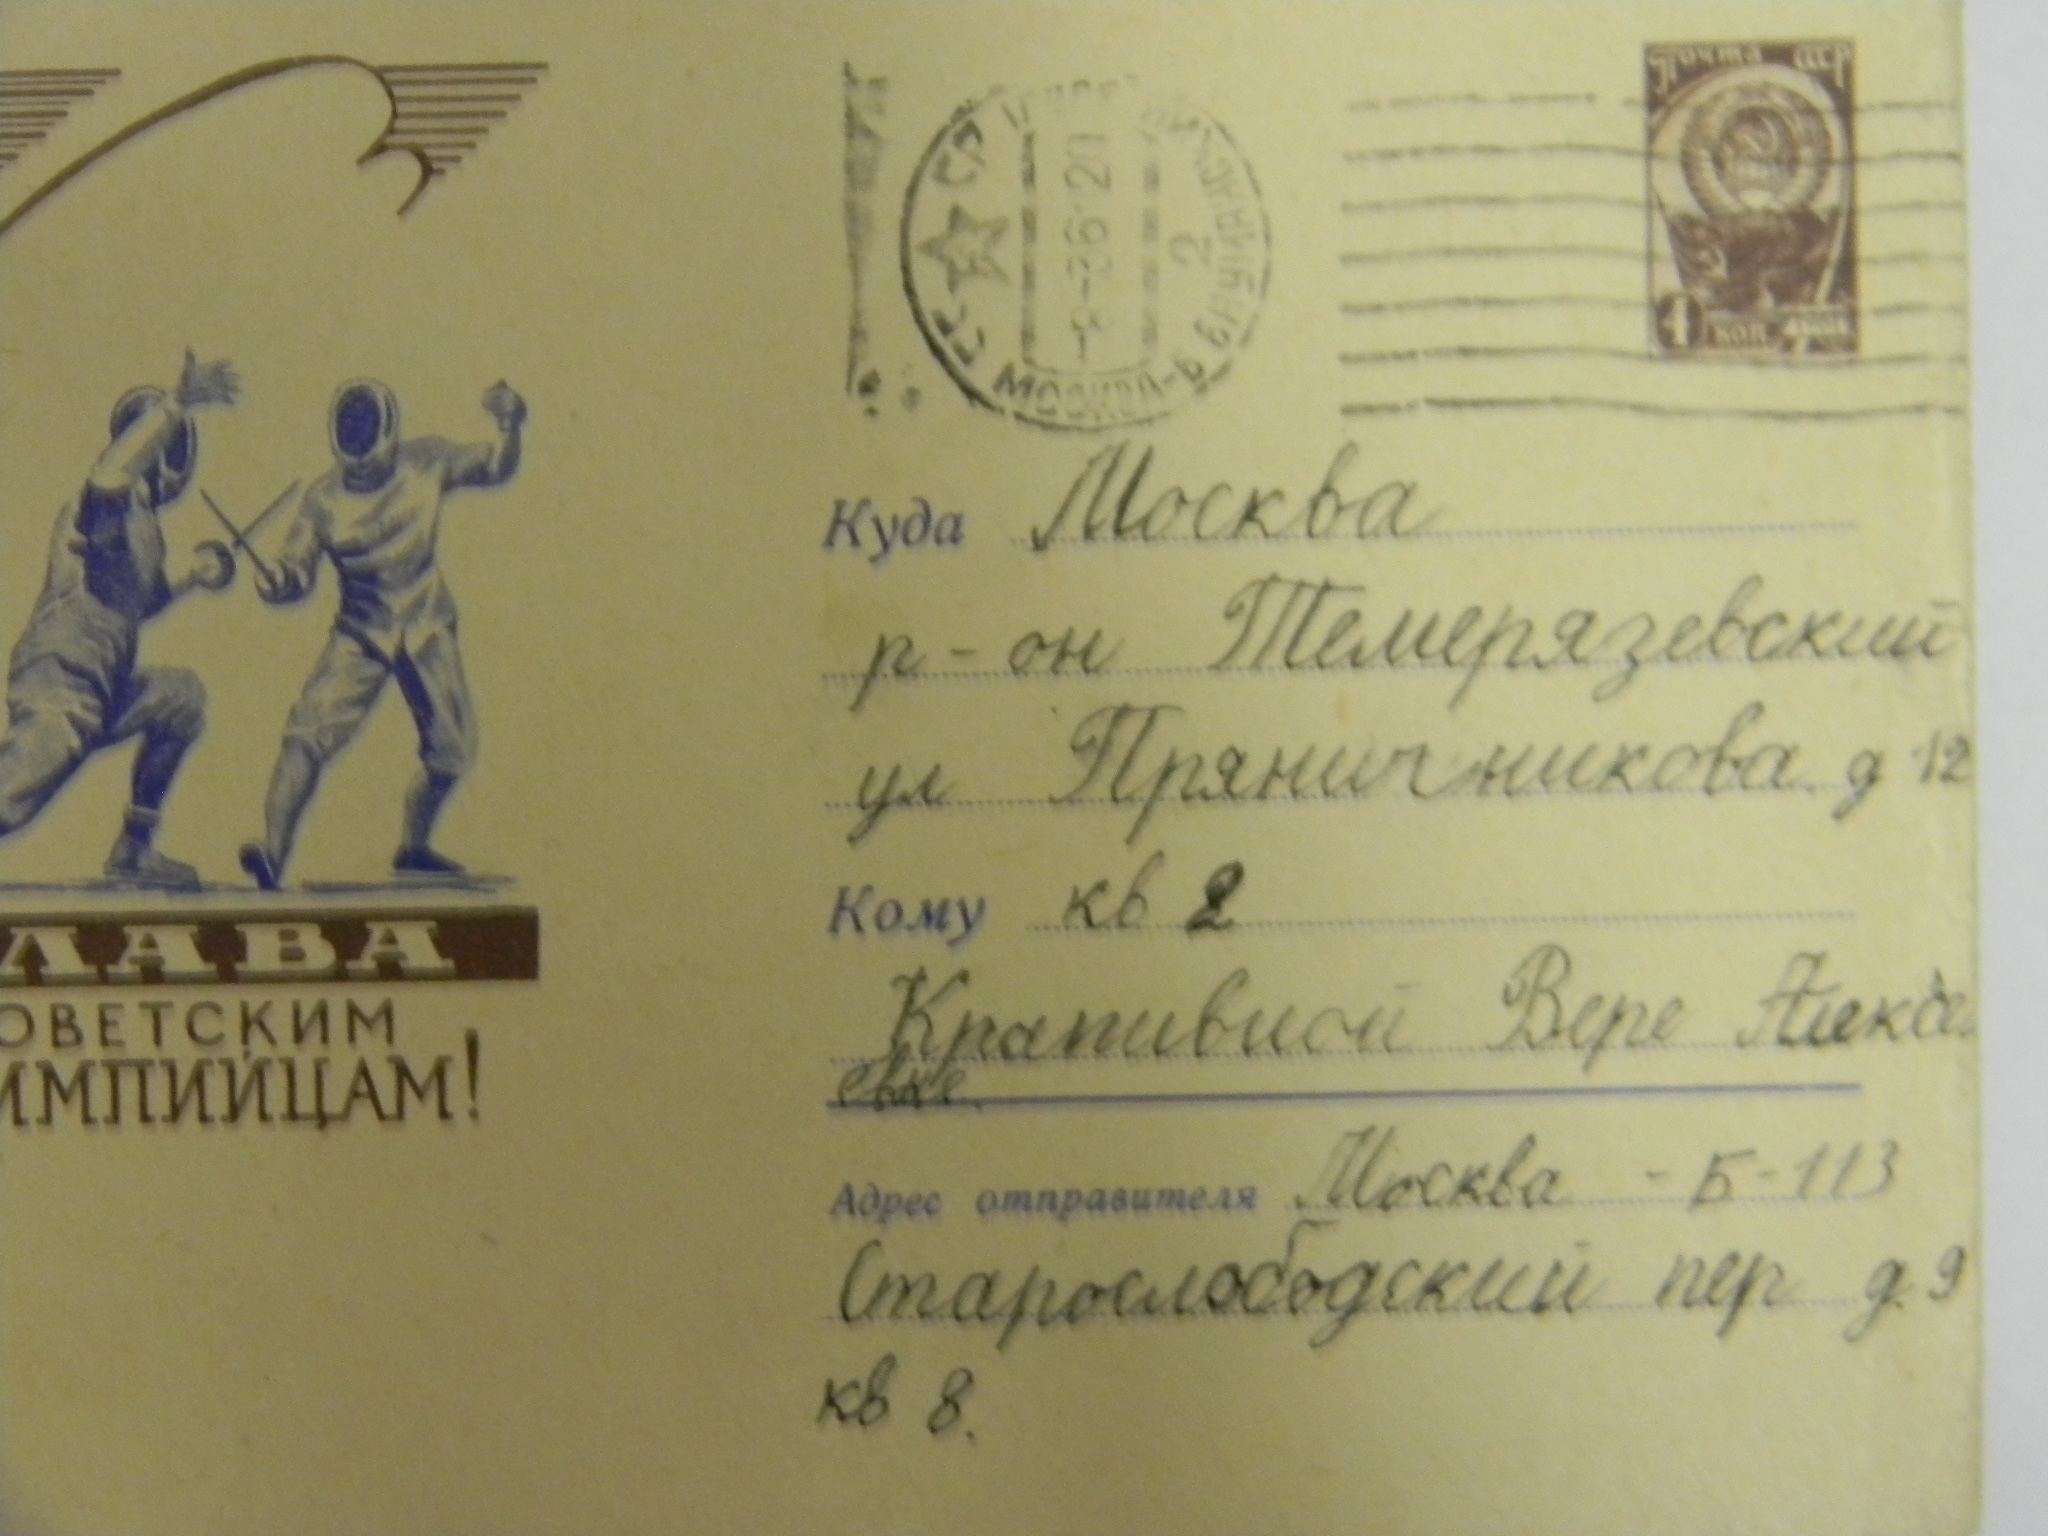 Почта СССР
4 коп
МОСКВА-6
2
Куда Москва
р-он Темерязевский
ул Пряничникова д 12
Кому кв 2
Крапивной Вере Алексе
евне.
ЛАВА
ОВЕТСКИМ
ИМПИЙЦАМ!
Адрес отправителя Москва - Б-113
Старослободский пер д. 9
кв 8.